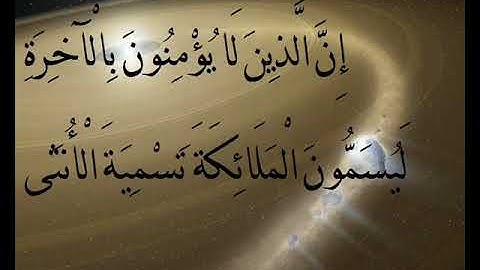 إِنَّ الَّذِينَ لَا يُؤْمِنُونَ بِالْآخِرَةِ
لَيُسَمُّونَ الْمَلَائِكَةَ تَسْمِيَةَ الْأُنثَى